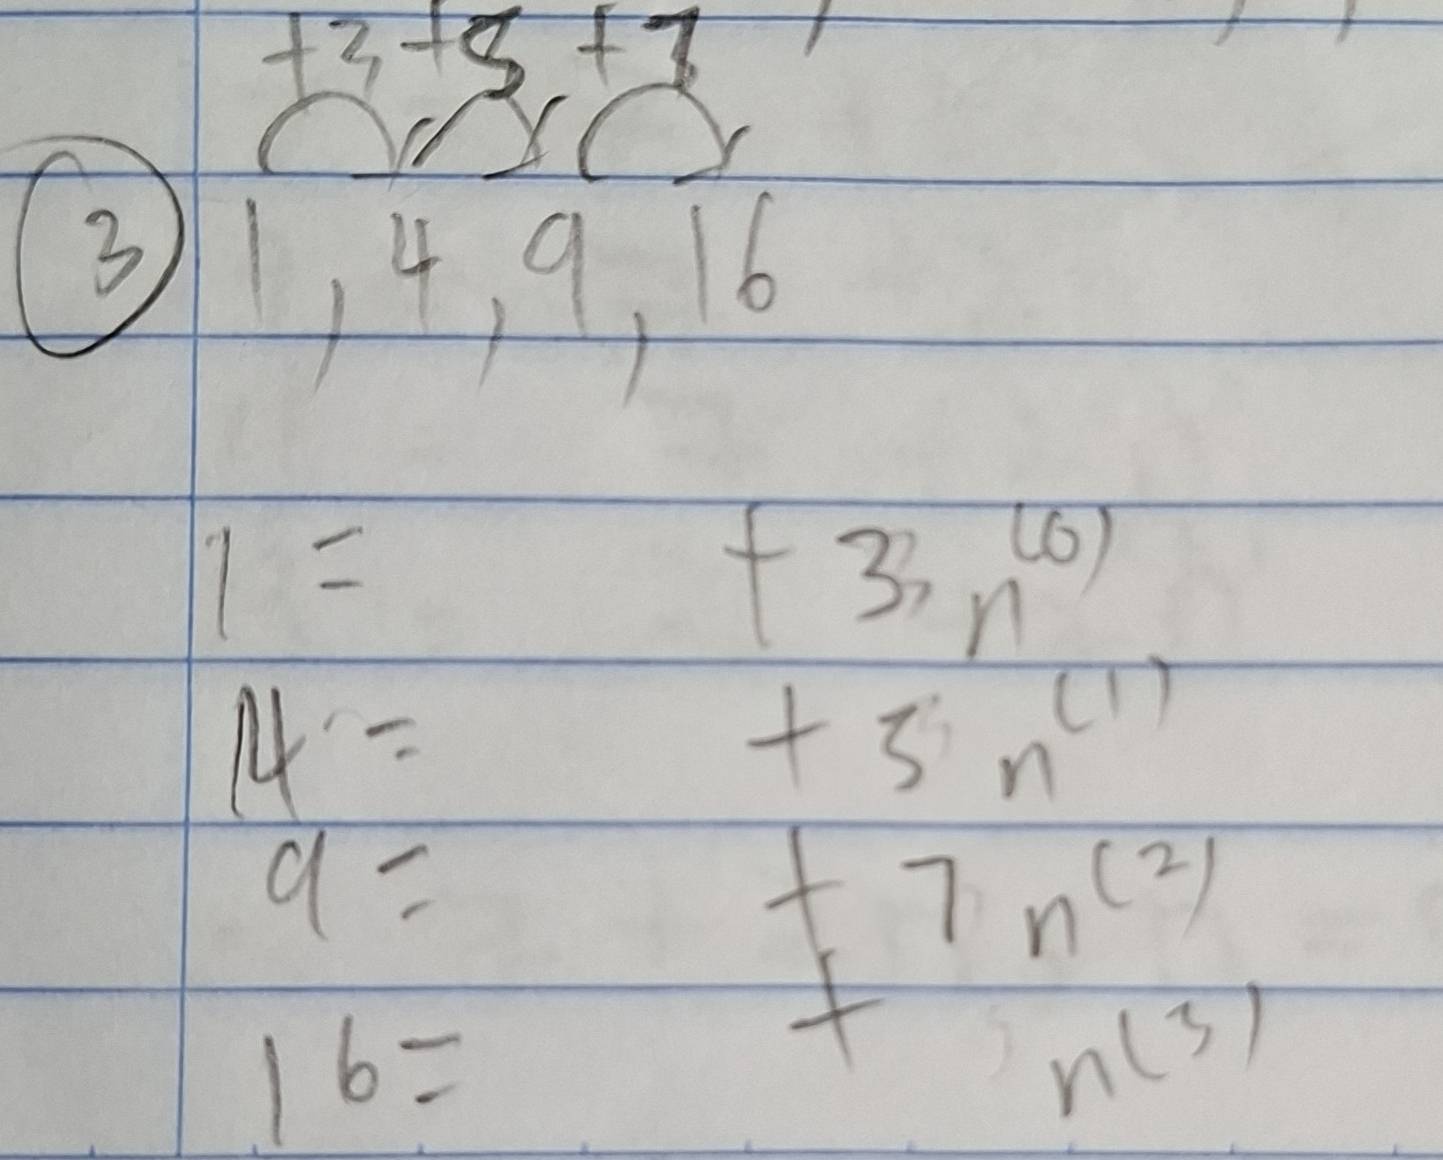 +3 +5 +7
③ 1, 4, 9, 16
1 = + 3 n^(0)
4 = + 5 n^(1)
9 = + 7 n^(2)
16 = + n^(3)